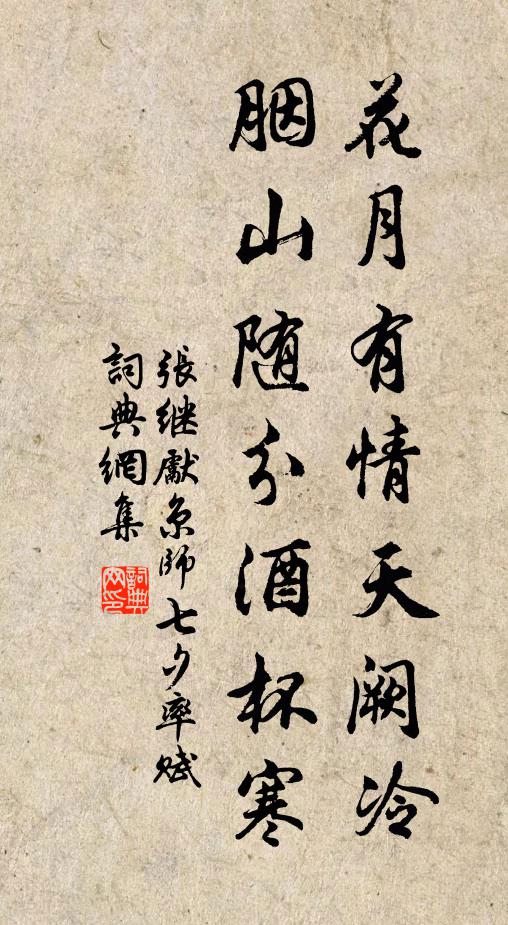 花月有情天阙冷
胭山随分酒杯寒
張继獻京師七夕率賦
詞典網集
詞典
网印